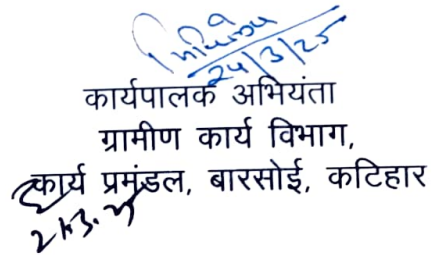 24/3/25
कार्यपालक अभियंता
ग्रामीण कार्य विभाग,
कार्य प्रमंडल, बारसोई, कटिहार